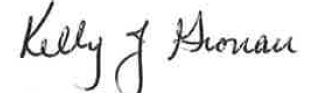 Kelly J Gronau